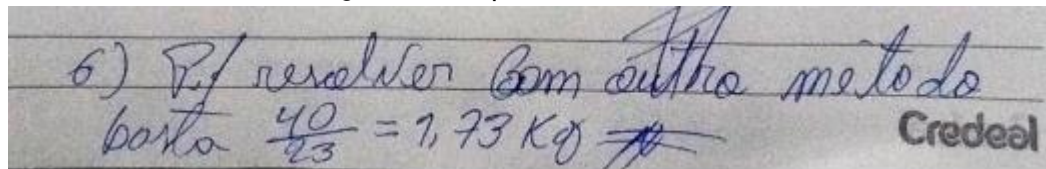 6) P/ resolver com outro método
basta 40/23 = 1,73 Kg
Credeal